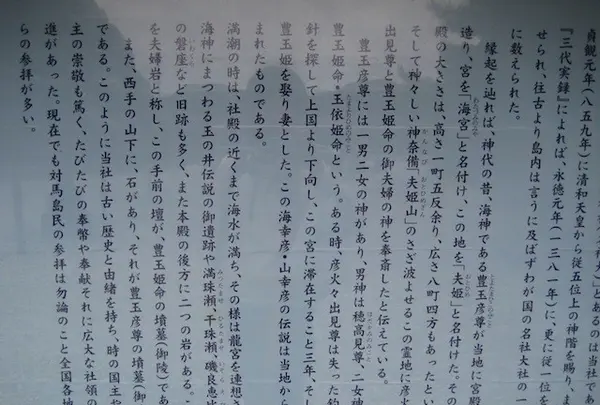 貞観元年（八五九年）に清和天皇から従五位上の神階を賜り、ま
『三代実録』によれば、永徳元年（一三八一年）に更に従一位を
せられ、往古より島内は言うに及ばずわが国の名社大社の一
に数えられた。
縁起を辿れば、神代の昔、海神である豊玉彦尊が当地に宮殿
造り、宮を「海宮」と名付け、この地を「夫姫」と名付けた。その
殿の大きさは、高さ一町五反余り、広さ八町四方もあったとい
そして神々しい神奈備「夫姫山」のさざ波よせるこの霊地に彦
出見尊と豊玉姫命の御夫婦の神を奉斎したと伝えている。
豊玉彦尊には一男二女の神があり、男神は穂高見尊、二女神
豊玉姫命・玉依姫命という。ある時、彦火々出見尊は失った釣
針を探して上国より下向し、この宮に滞在すること三年、そし
豊玉姫を娶り妻とした。この海幸彦・山幸彦の伝説は当地から
まれたものである。
満潮の時は、社殿の近くまで海水が満ち、その様は龍宮を連想さ
海神にまつわる玉の井伝説の御遺跡や満珠瀬、干珠瀬、磯良恵比
の磐座など旧跡も多く、また本殿の後方に二つの岩がある。こ
を夫婦岩と称し、この手前の壇が、豊玉姫命の墳墓（御陵）であ
また、西手の山下に、石があり、それが豊玉彦尊の墳墓（御
である。このように当社は古い歴史と由緒を持ち、時の国主や
主の崇敬も篤く、たびたびの奉幣や奉献それに広大な社領の
進があった。現在でも対馬島民の参拝は勿論のこと全国各地
らの参拝が多い。